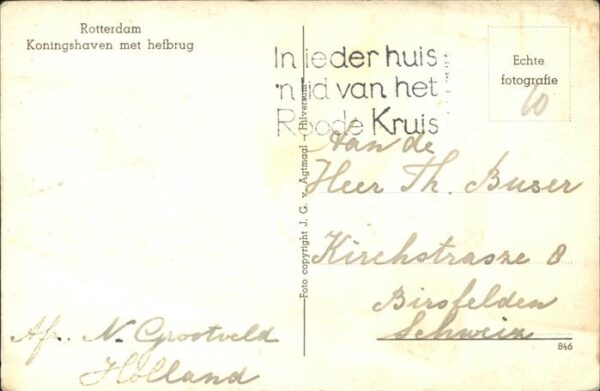 Rotterdam
Koningshaven met hefbrug
In ieder huis
'n lid van het
Roode Kruis
Echte
fotografie
60
Aan de
Heer Th. Buser
Kirchstrasze 8
Birsfelden
Schweiz
Afz. N. Grootveld
Holland
Foto copyright J. G. v. Agtmaal - Hilversum
846